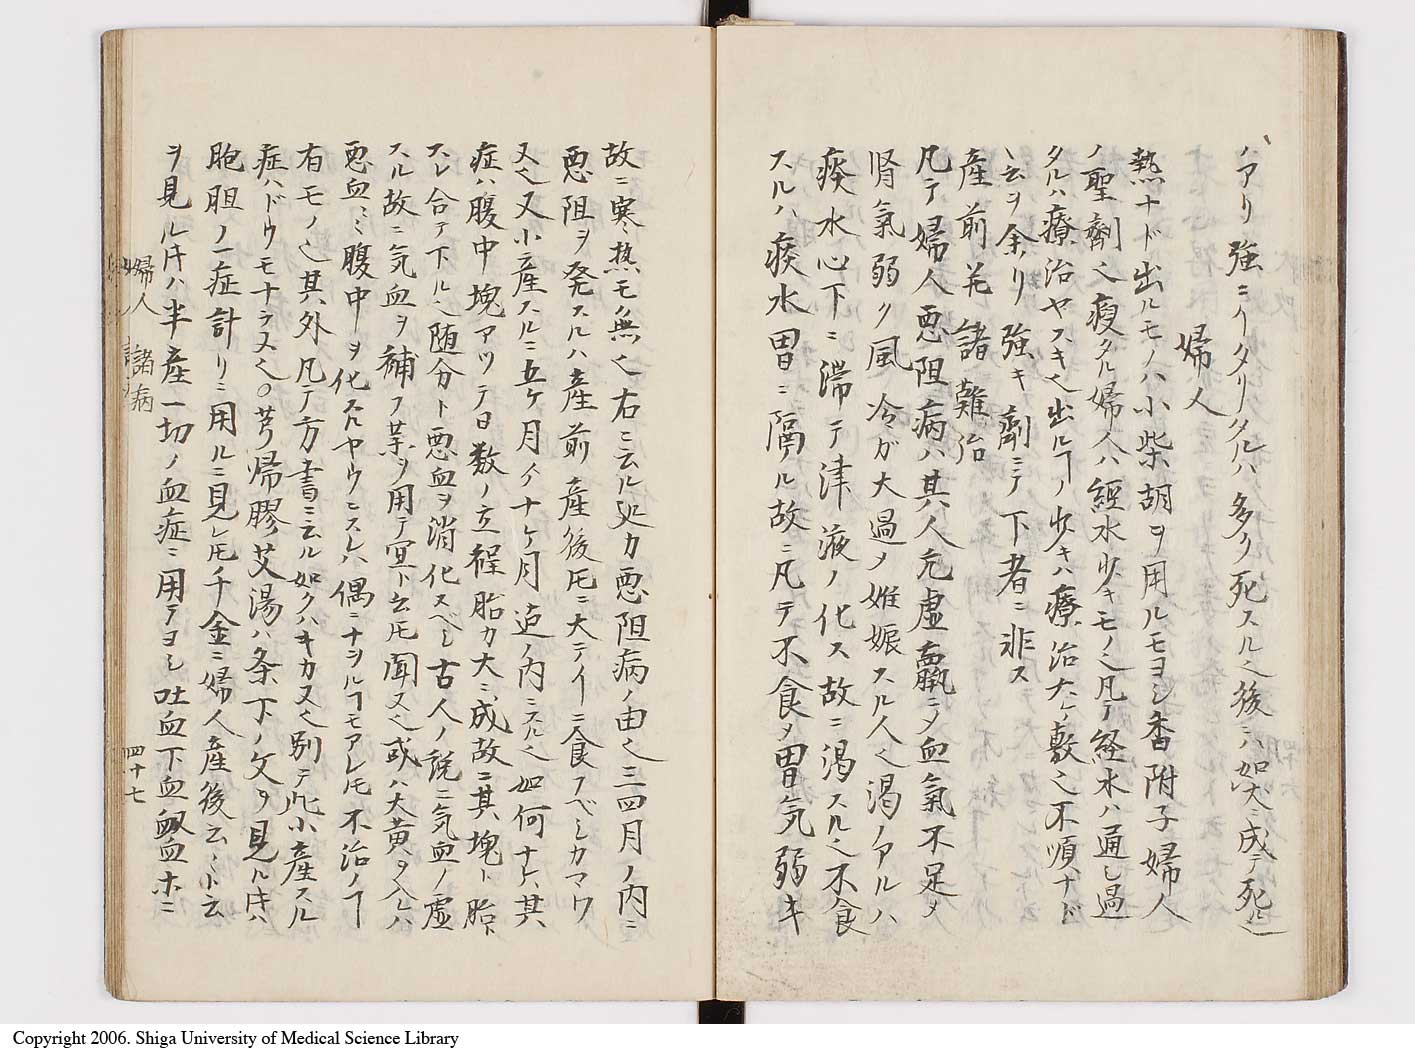 ハアリ強ニクタリタルハ多ク死スル也後ニハ如犬ニ成テ死也
婦人
熱ナド出ルモノハ小柴胡ヲ用ルモヨシ香附子婦人
ノ聖劑也瘦タル婦人ハ經水少キモノ也凡テ経水ハ通し過
タルハ療治ヤスキ也出ルヿノ少キハ療治大ケ敷也不順ナド
ヽ云ヲ余リ強キ劑ニテ下者ニ非ス
産前并諸難治
凡テ婦人悪阻病ハ其人元虚羸ニメ血氣不足メ
腎氣弱ク風冷ガ大過メ姙娠スル人也渇ノアルハ
痰水心下ニ滞テ津液ノ化ス故ニ渇スル也不食
スルハ痰水胃ニ隔ル故ニ凡テ不食メ胃気弱キ
故ニ寒熱モノ無也右ニ云ル処カ悪阻病ノ由也三四月ノ内ニ
悪阻ヲ発スルハ産前産後圧ニ大テイニ食フベシカマワ
又也又小産スルニ五ケ月メ十ケ月迠ノ内ニスル也如何ナレハ其
症ハ腹中塊アツテ日数ノ立程胎カ大ニ成故ニ其塊ト胎ト
スレ合テ下ル也随分ト悪血ヲ消化スベシ古人ノ説ニ気血ノ虚
スル故ニ気血ヲ補フ薬ヲ用テ宜ト云圧聞又也或ハ大黄ヲ入レハ
悪血ニミ腹中ヲ化スルヤウニスレハ偶ニナシルヿモアレ圧不治ノヿ
有モノ也其外凡テ方書ニ云ル如クハキカ又也別テ此小産スル
症ハドウモナラ又也○芎帰膠艾湯ハ条下ノ文ヲ見ル时ハ
胞胆ノ一症計リニ用ルニ見レ圧千金ニ婦人産後云々ト云
ヲ見ル时ハ半産一切ノ血症ニ用テヨシ吐血下血衂血ホニ
婦人 諸病
四十七
Copyright 2006. Shiga University of Medical Science Library